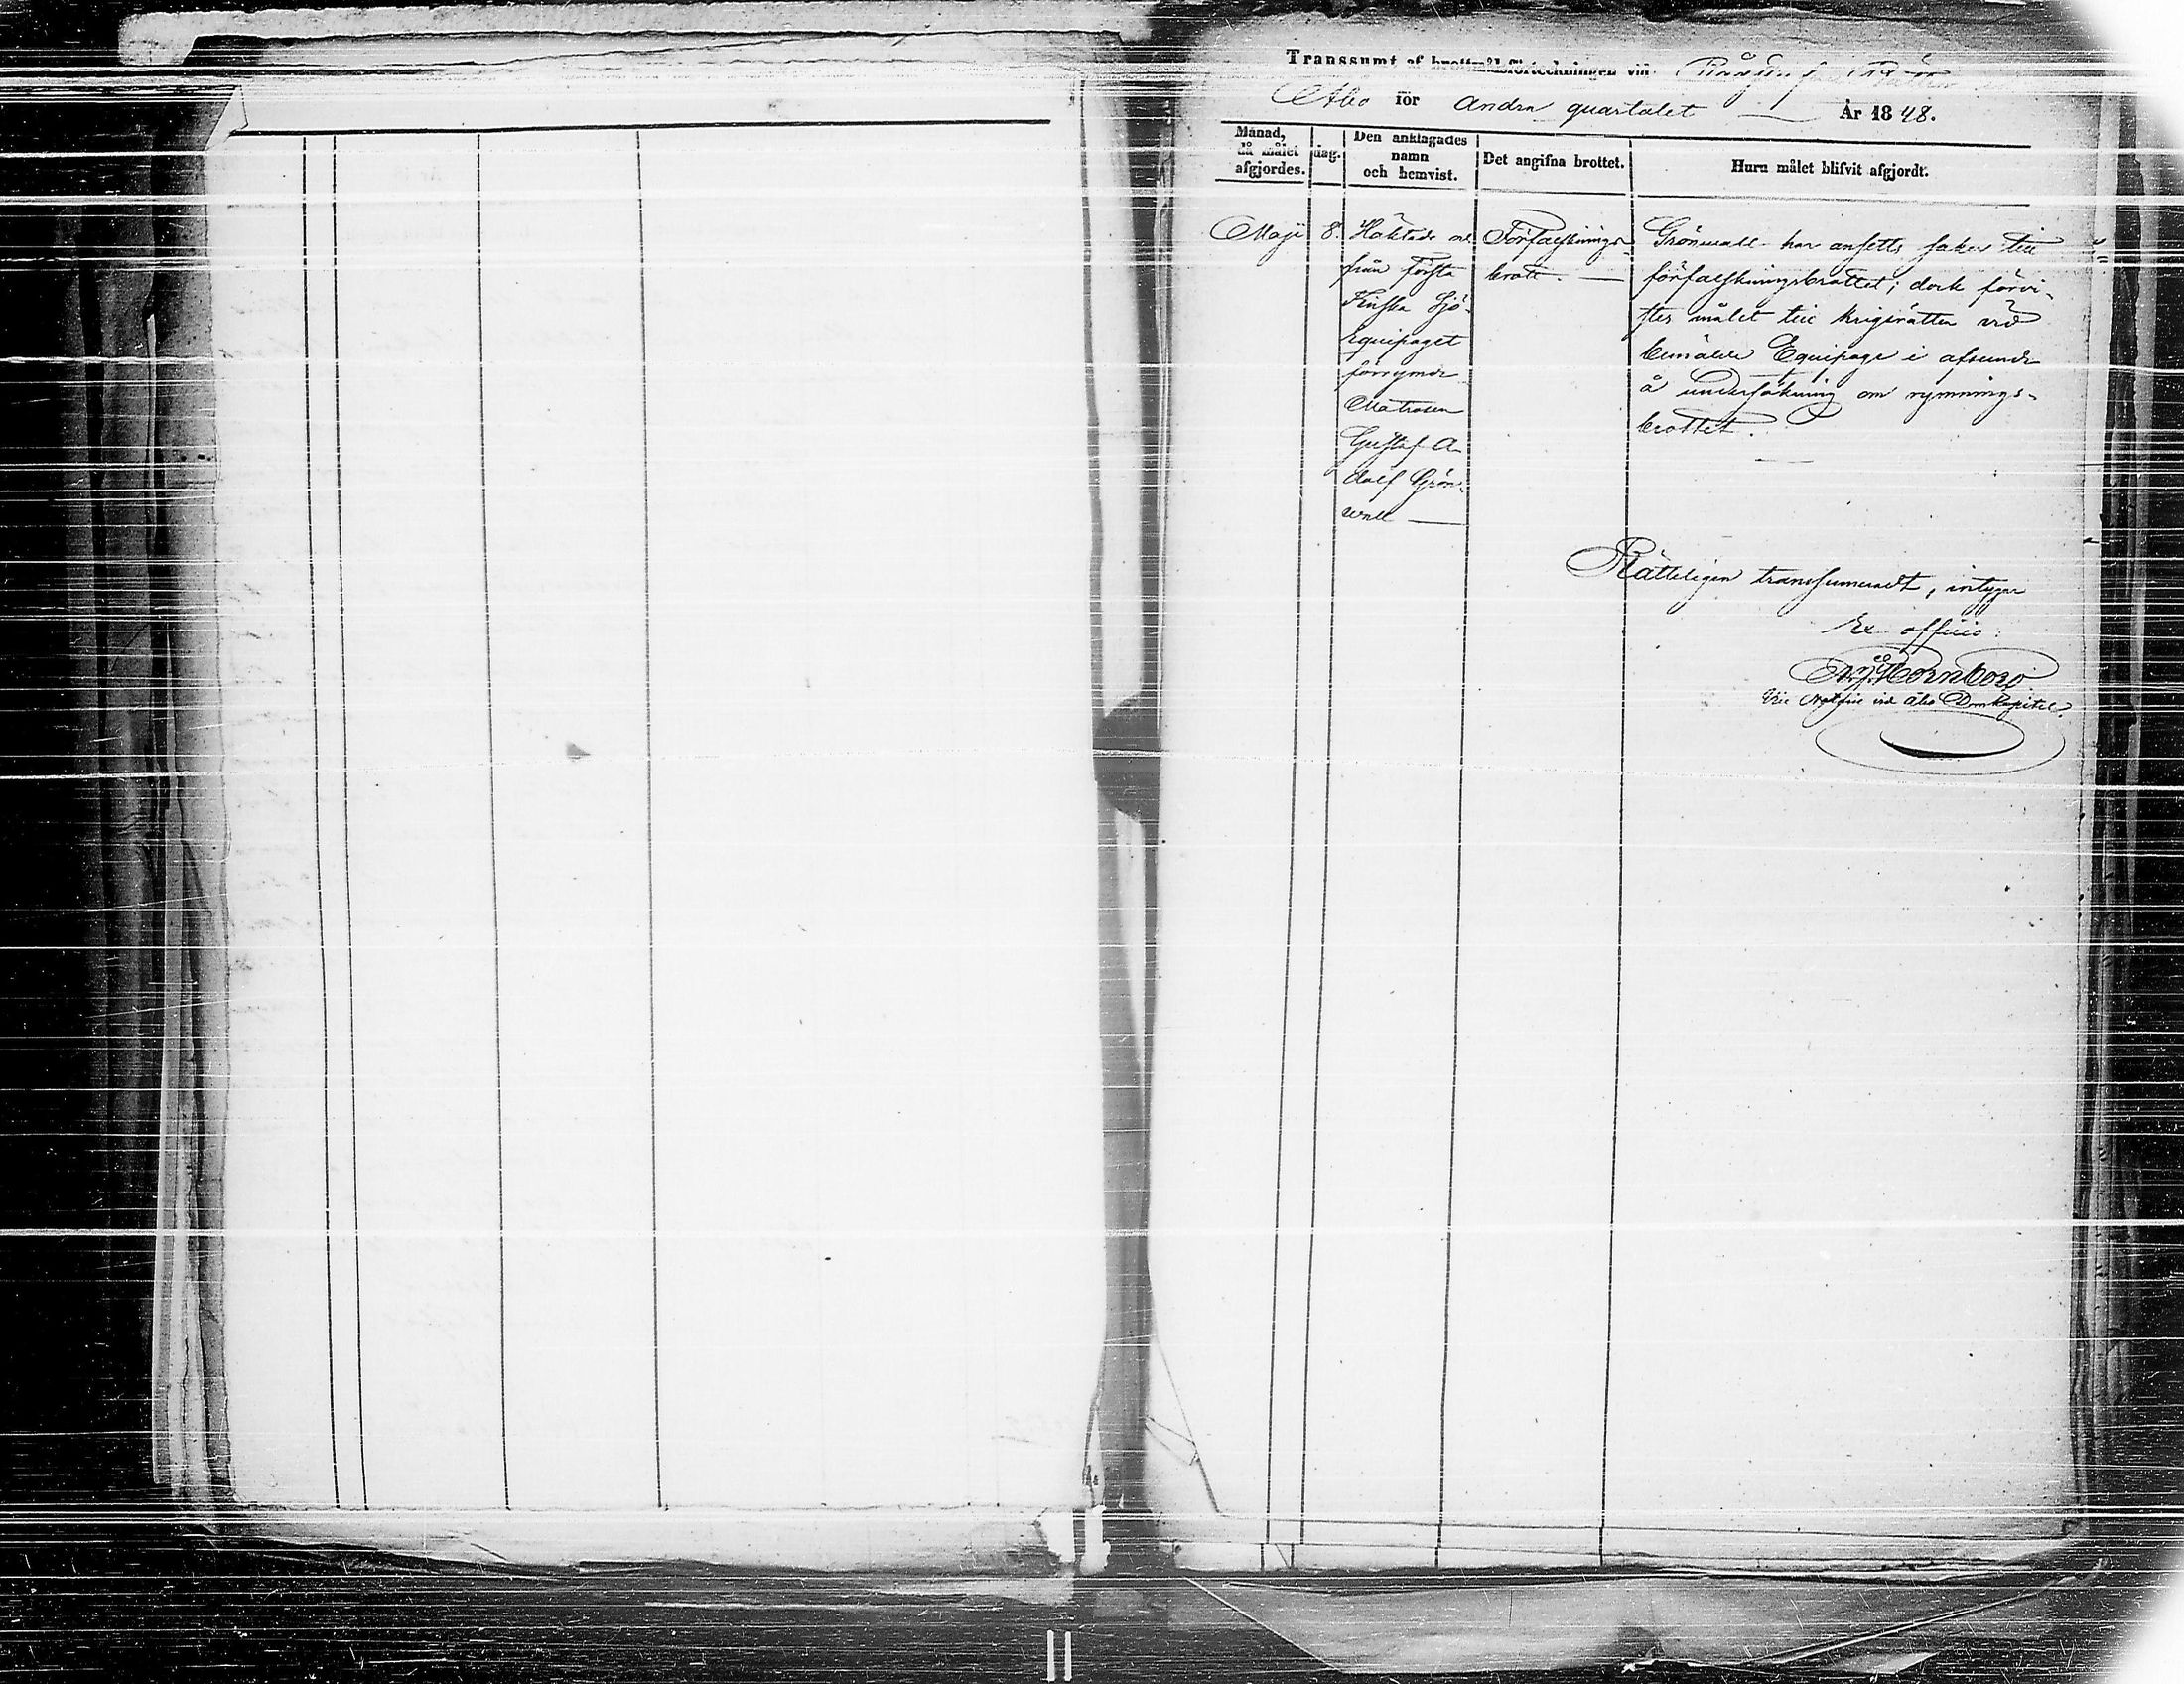 Transsumt af brottmålsförteckningen vid Rådstufvu Rätten
Åbo för Andra quartalet År 1848.
Månad, då målet afgjordes.
dag.
Den anklagades namn och hemvist.
Det angifna brottet.
Huru målet blifvit afgjordt.
Maji
8.
Häktade och
från första
Finska Sjö-
Equipaget
förrymde
Matrosen
Gustaf A-
dolf Grön-
wall
Förfalsknings-
brott.
Grönwall har ansetts saker till
förfalskningsbrottet; dock förvi-
stes målet till krigsrätten vid
bemälde Equipage i afseende
å undersökning om rymnings-
brottet.
Rätteligen transsumeradt, intygar
Ex officio:
Hornborg
Vice Notarie vid Åbo Domkapitel.